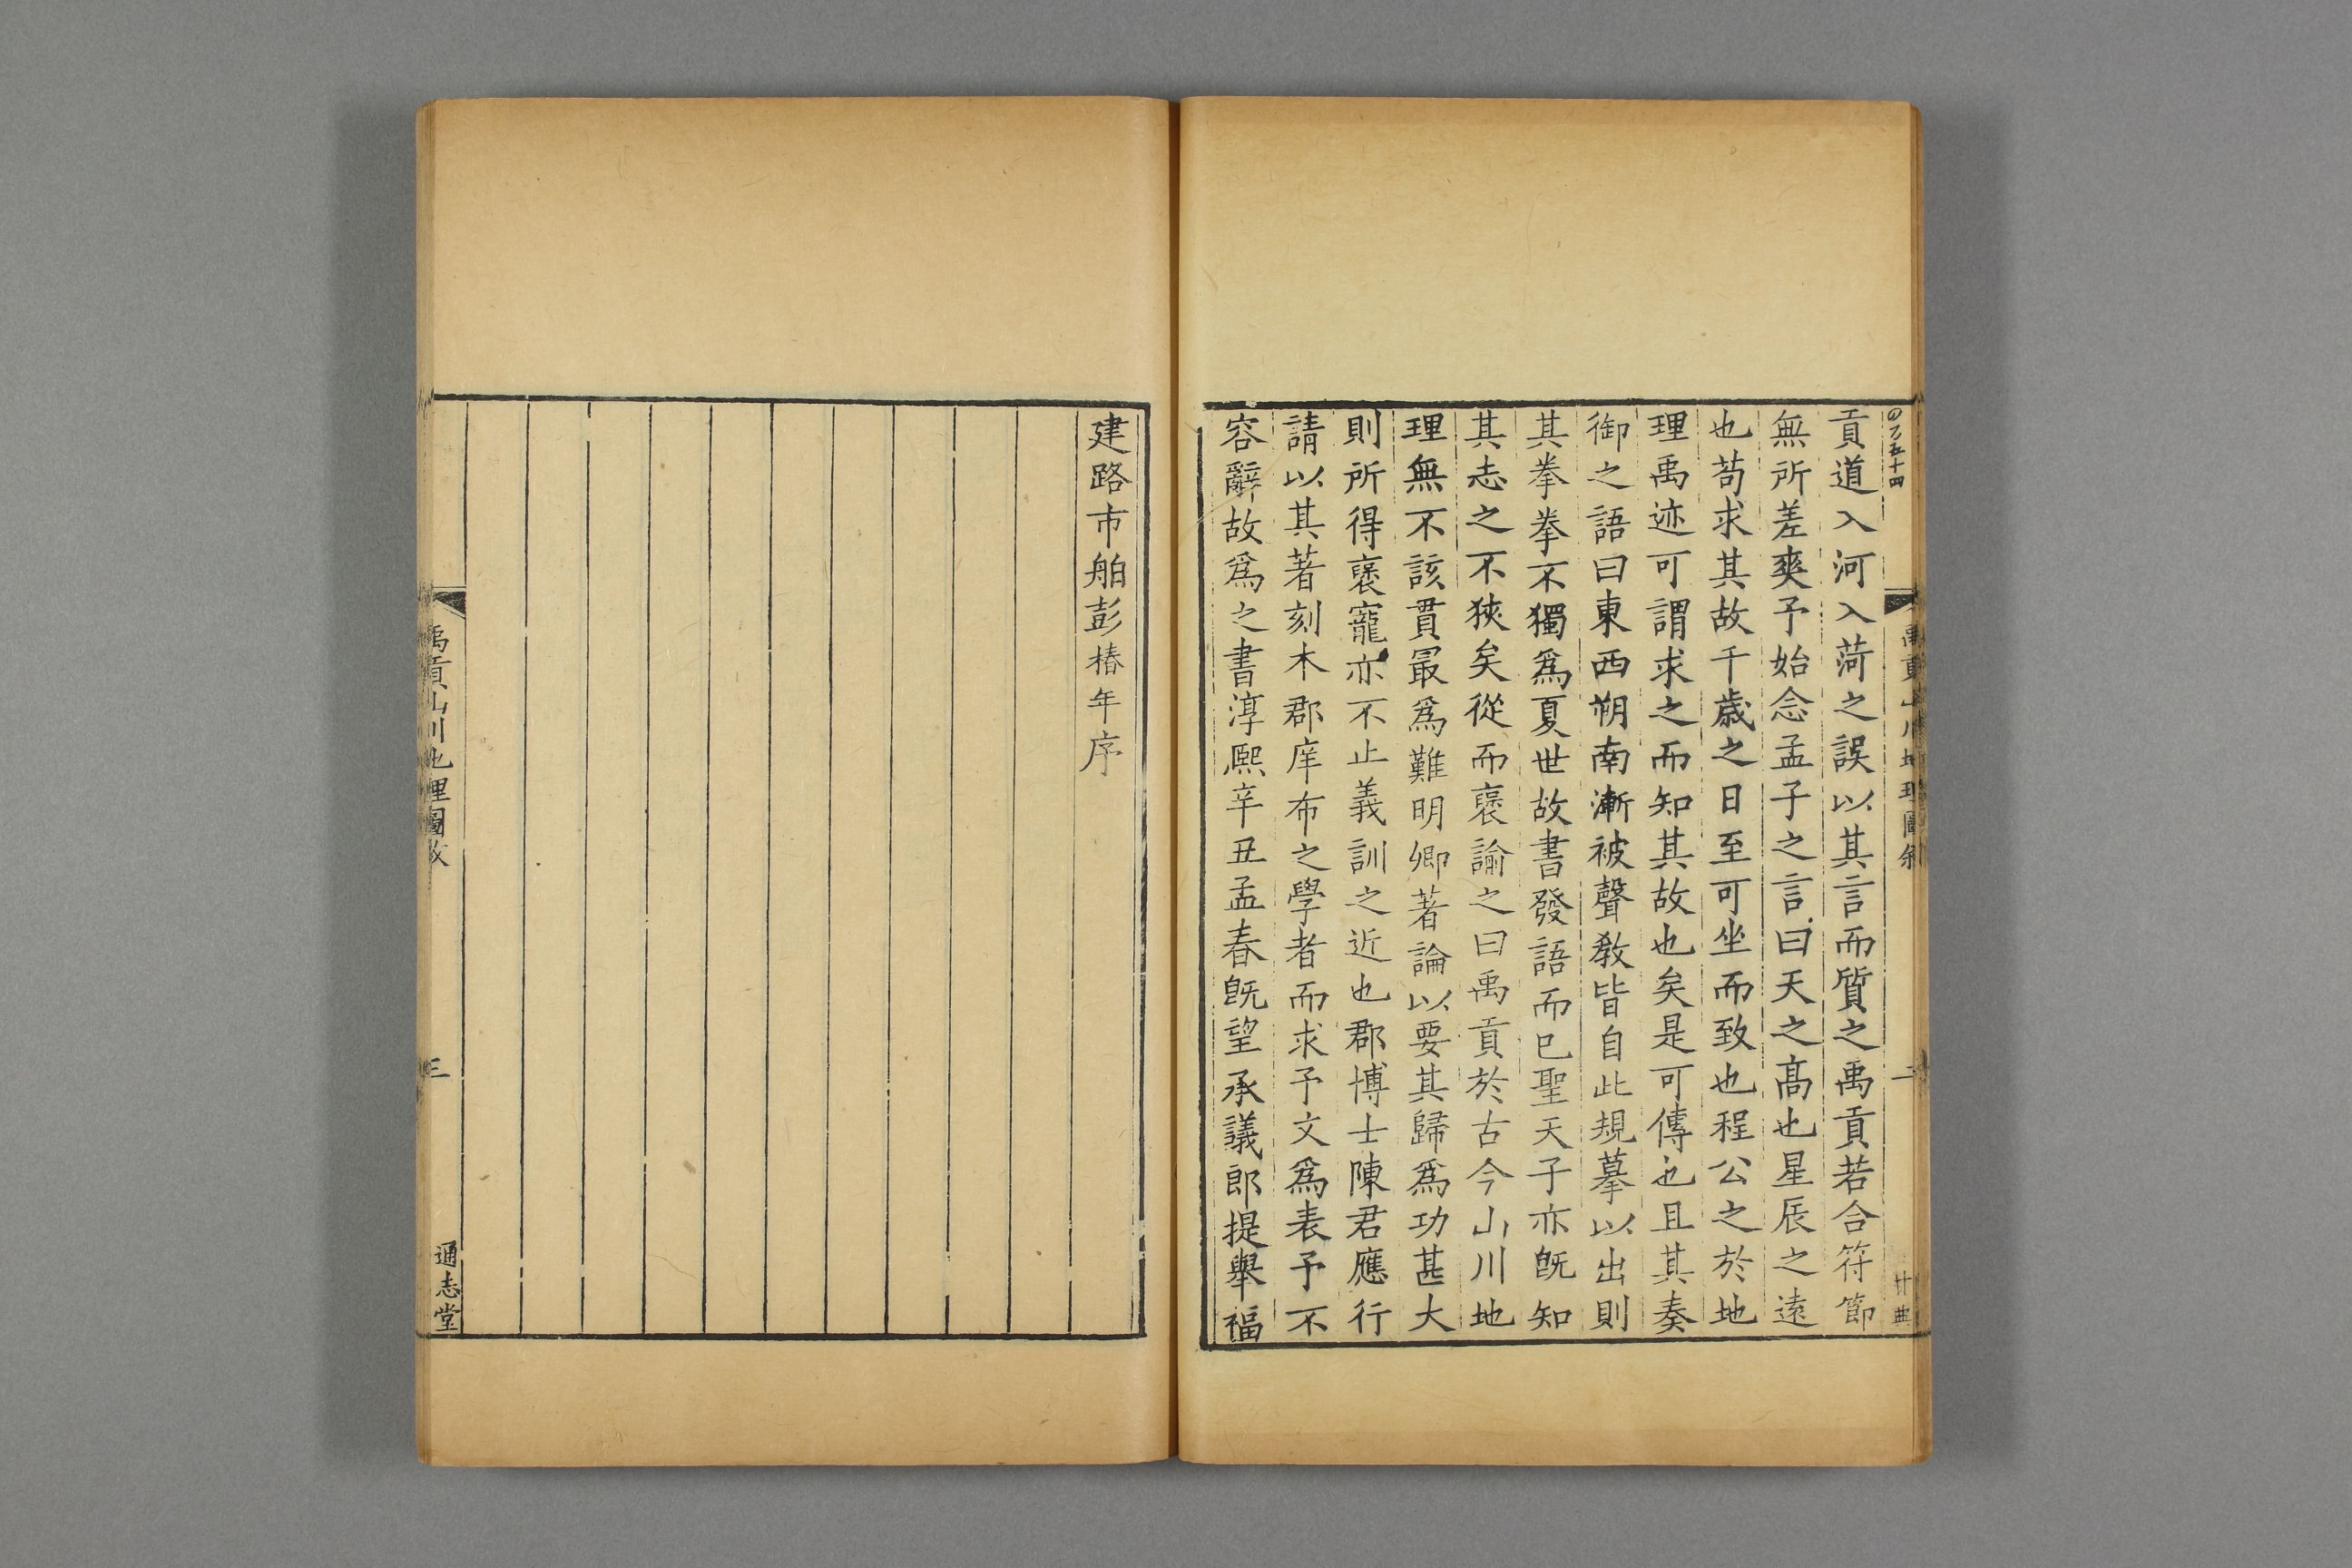 貢道入河入菏之誤以其言而質之禹貢若合符節
無所差爽予始念孟子之言曰天之髙也星辰之遠
也苟求其故千歳之日至可坐而致也程公之於地
理禹迹可謂求之而知其故也矣是可傳也且其奏
御之語曰東西朔南漸被聲敎皆自此規摹以出則
其拳拳不獨爲夏世故書發語而已聖天子亦旣知
其志之不狹矣從而襃諭之曰禹貢於古今山川地
理無不該貫最爲難明卿著論以要其歸爲功甚大
則所得襃寵亦不止義訓之近也郡博士陳君應行
請以其著刻木郡庠布之學者而求予文爲表予不
容辭故爲之書淳熙辛丑孟春旣望承議郎提舉福
建路市舶彭椿年序
禹貢山川地理圖敘
三
通志堂